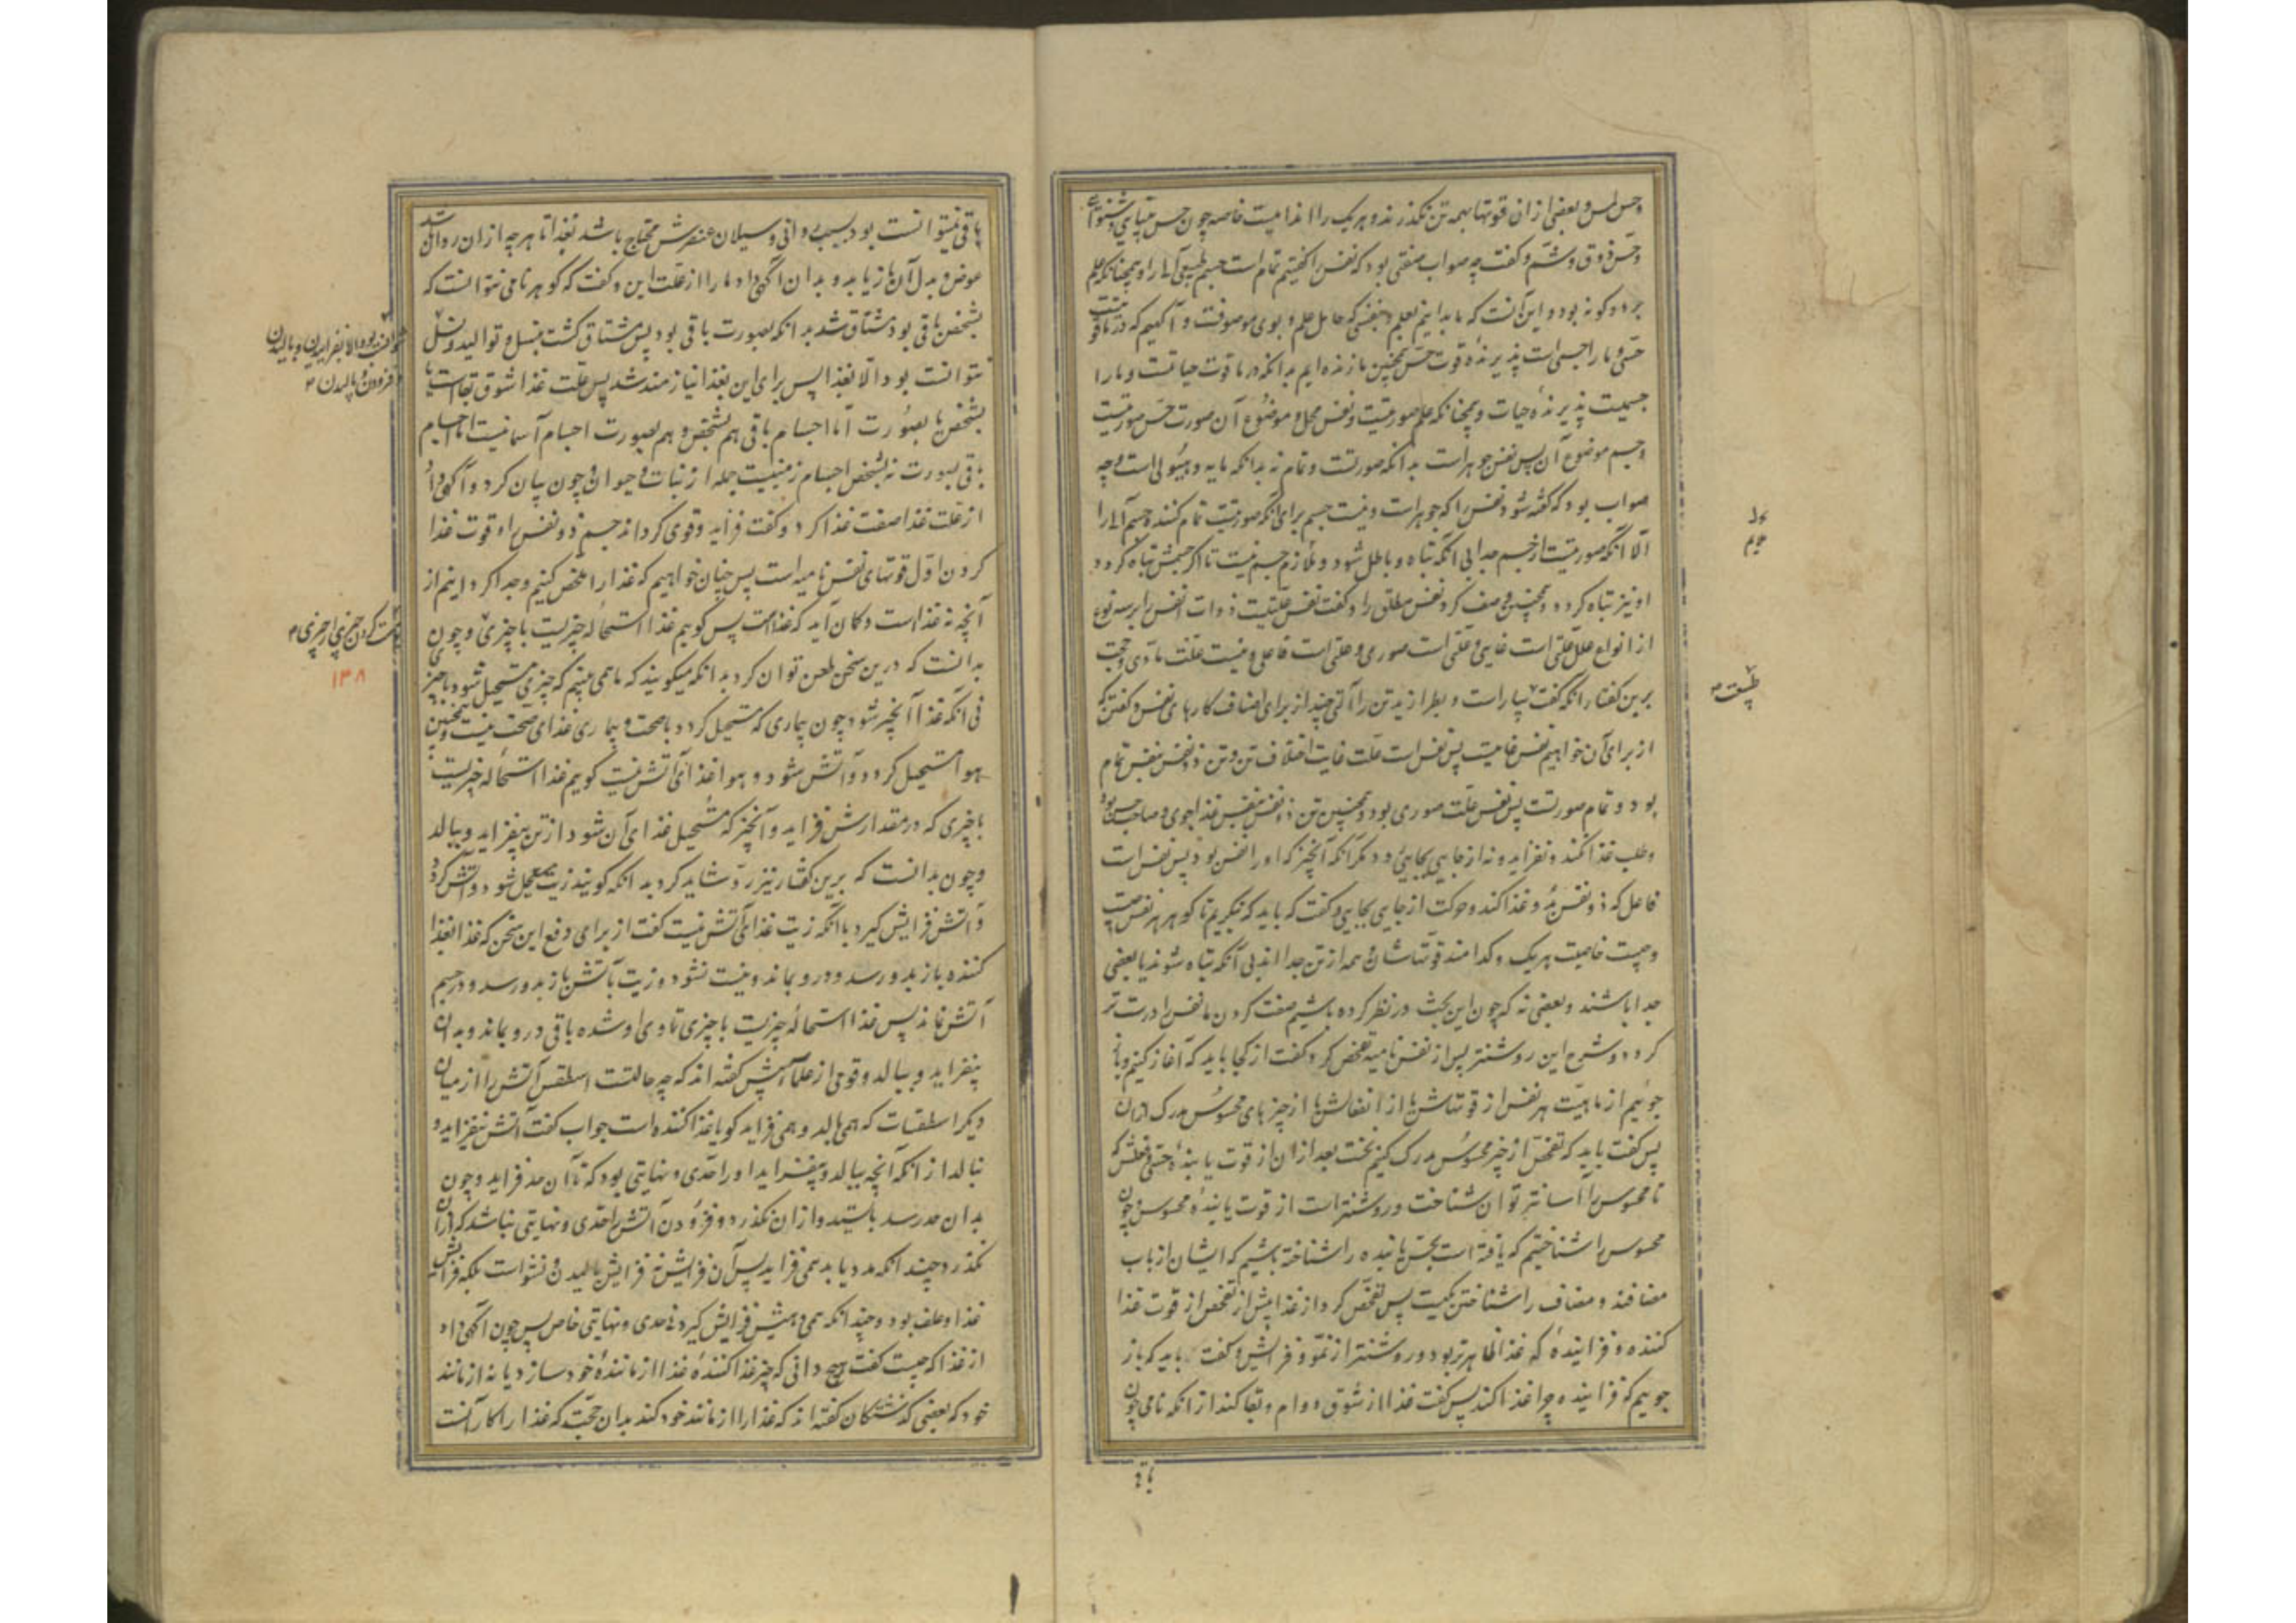 و حس لمس و بعضی از ان قوتها بهمه تن نکذرند و هریک را اندامیست خاصه چون حس بینایی و شنوایی
و حس ذوق و شم و کفت چه صواب صفتی بود که نفس را کفتیم تمام است جسم طبیعی آلی را و همچنانکه علم
بر دو کونه بود و این آنست که ما بدانیم بعلم و بنفسی که حامل علم و بوی موصوفست و آکهیم که در ما قوت
حسی و ما را جسمی است پذیرندهٔ قوت حس همچنین ما زنده ایم بدانکه در ما قوت حیاتست و ما را
جسمیست پذیرندهٔ حیات و همچنانکه علم صورتیست و نفس محل و موضوع آن صورت حس صورتیست
و جسم موضوع آن پس نفس جوهر است بدانکه صورتست و تمام نه بدانکه مایه و هیولی است و چه
صواب بود که کفته شود نفس را که جوهر است و نیست جسم برای آنکه صورتیست تمام کننده جسم آلی را
الا آنکه صورتیست از جسم جدا بی آنکه تباه و باطل شود و ملازم جسم نیست تا اکر جسمش تباه کردد
او نیز تباه کردد و همچنین وصف کرد نفس مطلق را و کفت نفس علتیست ذوات انفس را بر سه نوع
از انواع علل علتی است غایی و علتی است صوری و علتی است فاعلی و نیست علت مادی و حجت
برین کفتار آنکه کفت بسیار است و بطرازید تن را آلتی چند از برای اصناف کارهای نفس و کفتن که
از برای آن خواهیم نفس غایت پس نفس است علت غایت اختلاف تن و تن ذو نفس بنفس تمام
بود و تمام صورتست پس نفس علت صوری بود و همچنین تن ذو نفس بنفس غذا جوی و صاحب حس بود
و طلب غذا کند و بفزاید و نه از جایی بجایی رود مکر آنکه آنچیز که او را نفس بود پس نفس است
فاعل که ذو نفس نمو و غذا کند و حرکت از جایی بجایی و کفت که باید که بنکریم تا کوهر هر نفس چیست
و چیست خاصیت هریک و کدامند قوتهاشان و همه از تن جدا اند بی آنکه تباه شوند یا بعضی
جدا باشند و بعضی نه که چون این بحث در نظر کرده باشیم صفت کردن ما نفس را درست تر
کردد و شرح این روشنتر پس از نفس نامیه تفحص کرد و کفت از کجا باید که آغاز کنیم و باز
جوئیم از ماهیت هر نفس از قوتهاش یا از انفعالش یا از چیزهای محسوس مدرک ازان
پس کفت باید که تفحص از چیز محسوس مدرک کنیم نخست بعد از ان از قوت یابندهٔ حسی و فعلش که
تا محسوس را آسانتر توان شناخت و روشنتر است از قوت یابندهٔ محسوس چون
محسوس را شناختیم که یافته است بحس یابنده را شناخته باشیم که ایشان از باب
مضافند و مضاف را شناختن یکیست پس تفحص کرد از غذا پیش از تفحص از قوت غذا
کننده و فزاینده که غذا ظاهرتر بود و روشنتر از نمو و فزایش و کفت باید که باز
جوییم که فزاینده چرا غذا کند پس کفت غذا از شوق دوام و بقا کند از انکه نامی چون
باقی
طبیعت
باقی نمیتوانست بود بسبب روانی و سیلان عنصرش محتاج باشد بغذا تا هر چه از ان روان شد
عوض و بدل آن باز یابد و بدان آکهی داد ما را از علت این و کفت که کوهر نامی نتوانست که
بشخص باقی بود مشتاق شد بدانکه بصورت باقی بود پس مشتاق کشت بنسل و توالید و نسل
نتوانست بود الا بغذا پس برای این بغذا نیازمند شد پس علت غذا شوق بقاست یا
بشخص یا بصورت اما اجسام باقی هم بشخص و هم بصورت اجسام آسمانیست اما اجسام
باقی بصورت نه بشخص اجسام زمینیست جمله از نبات و حیوان و چون بیان کرد و آکهی داد
از علت غذا صفت غذا کرد و کفت فزاید و قوی کرداند جسم ذو نفس را و قوت غذا
کردن اول قوتهای نفس نامیه است پس چنان خواهیم که غذا را ملخص کنیم و جدا کردانیم از
آنچه نه غذا است و کمان آید که غذاست پس کوییم غذا استحالهٔ چیزیست با چیزی و چون
بدانست که درین سخن طعن توان کرد بدانکه میکویند که ما همی بینیم که چیزی مستحیل شود با چیزی
نی آنکه غذا آنچیز شود چون بیماری که مستحیل کردد با صحت و بیماری غذای صحت نیست و همچنین
هوا مستحیل کردد و آتش شود و هوا غذای آتش نیست کوییم غذا استحاله چیزیست
با چیزی که در مقدارش فزاید و آنچیز که مستحیل غذای آن شود از تن بیفزاید و ببالد
و چون بدانست که برین کفتار نیز رد شاید کرد بدانکه کویند زیت مستحیل شود و آتش کردد
و آتش فزایش کیرد با آنکه زیت غذای آتش نیست کفت از برای دفع این سخن که غذا بغذا
کننده باز بدو رسد و درو بماند و نیست نشود و زیت بآتش باز بدو رسد و در جسم
آتش نماند پس غذا استحالهٔ چیزیست با چیزی تا وی او شده باقی درو بماند و بدان
بیفزاید و ببالد و قومی از علماء پیش کفته اند که چه حالتست اسطقس آتش را از میان
دیکر اسطقسات که همی بالد و همی فزاید کویا غذا کننده است جواب کفت آتش نیفزاید و
نبالد از آنکه آنچه ببالد و بیفزاید او را حدی و نهایتی بود که تا آن حد فزاید و چون
بدان حد رسد بایستد و از ان نکذرد و فزودن آتش را حدی و نهایتی نباشد که ازان
نکذرد و چند انکه مدد یابد همی فزاید پس آن فزایش نه فزایش بالیدن و نشو است بلکه فزایش
غذا و علف بود و چند انکه همی دهیش فزایش کیرد نه حدی و نهایتی خاص پس چون آکهی داد
از غذا که چیست کفت هیچ دانی که چیز غذا کننده غذا از مانندهٔ خود سازد یا نه از مانند
خود که بعضی کذشتکان کفته اند که غذا را از مانند خود کند بدان حجت که غذا را کار آنست
نتوانست بود الا بفزاییدن و بالیدن
افزودن و بالیدن
کردن چیزی از چیزی
۱۳۸